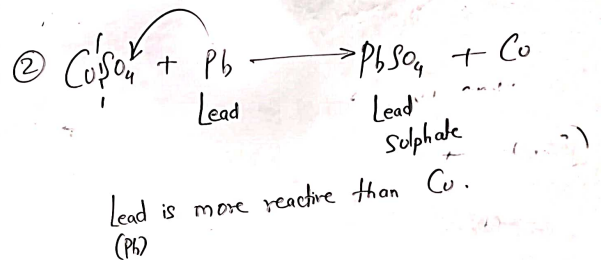 ② CuSO₄ + Pb → PbSO₄ + Cu
Lead Lead
Sulphate
Lead is more reactive than Cu.
(Pb)